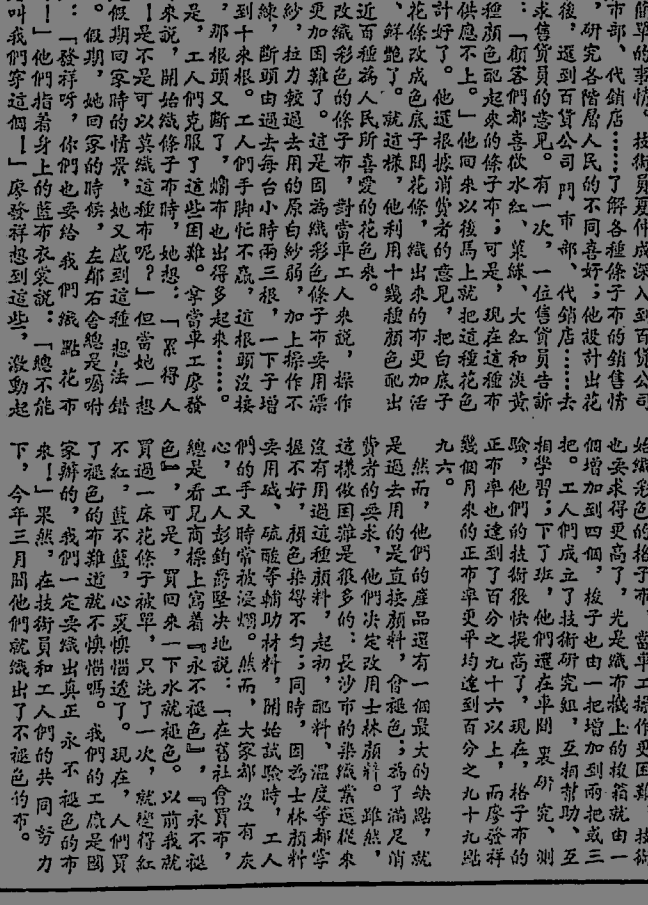 簡單的事情。技術員夏仲成深入到百貨公司
市部、代銷店……了解各種條子布的銷售情
，研究各階層人民的不同喜好；他設計出花
後，還到百貨公司門市部、代銷店……去
求售貨員的意見。有一次，一位售貨員告訴
：「顧客們都喜歡水紅、菜綠、大紅和淡黃
種顏色配起來的條子布；可是，現在這種布
供應不上。」他回來以後馬上就把這種花色
計好了。他還根據消費者的意見，把白底子
花條改成色底子間花條，織出來的布更加活
、鮮艷了。就這樣，他利用十幾種顏色配出
近百種為人民所喜愛的花色來。
改織彩色的條子布，對當車工人來說，操作
更加困難了。這是因為織彩色條子布要用漂
紗，拉力較過去用的原白紗弱，加上操作不
練，斷頭由過去每台小時兩三根，一下子增
到十來根。工人們手脚忙不贏，這根頭沒接
，那根頭又斷了，爛布也出得多起來……。
是，工人們克服了這些困難。拿當車工廖發
來說，開始織條子布時，她想：「累得人
！是不是可以莫織這種布呢？」但當她一想
假期回家時的情景，她又感到這種想法錯
。假期，她回家的時候，左鄰右舍總是囑咐
：「發祥呀，你們也要給我們織點花布
！」他們指着身上的藍布衣裳說：「總不能
叫我們穿這個！」廖發祥想到這些，激動起
始織彩色的格子布，當車工操作更困難，技術
也要求得更高了，光是織布機上的梭箱就由一
個增加到四個，梭子也由一把增加到兩把或三
把。工人們成立了技術研究組，互相幫助、互
相學習；下了班，他們還在車間裏研究、測
驗，他們的技術很快提高了，現在，格子布的
正布率也達到了百分之九十六以上，而廖發祥
幾個月來的正布率更平均達到百分之九十九點
九六。
然而，他們的產品還有一個最大的缺點，就
是過去用的是直接顏料，會褪色；為了滿足消
費者的要求，他們決定改用士林顏料。雖然，
這樣做困難是很多的：長沙市的染織業還從來
沒有用過這種顏料，起初，配料、溫度等都掌
握不好，顏色染得不勻；同時，因為士林顏料
要用硫、硫酸等輔助材料，開始試驗時，工人
們的手又時常被浸爛。然而，大家都沒有灰
心，工人彭鈞蔚堅决地說：「在舊社會買布，
總是看見商標上寫着『永不褪色』，『永不褪
色』，可是，買回來一下水就褪色。以前我就
買過一床花條子被單，只洗了一次，就變得紅
不紅，藍不藍，心裏懊惱透了。現在，人們買
了褪色的布難道就不懊惱嗎。我們的工廠是國
家辦的，我們一定要織出真正永不褪色的布
來！」果然，在技術員和工人們的共同努力
下，今年三月間他們就織出了不褪色的布。